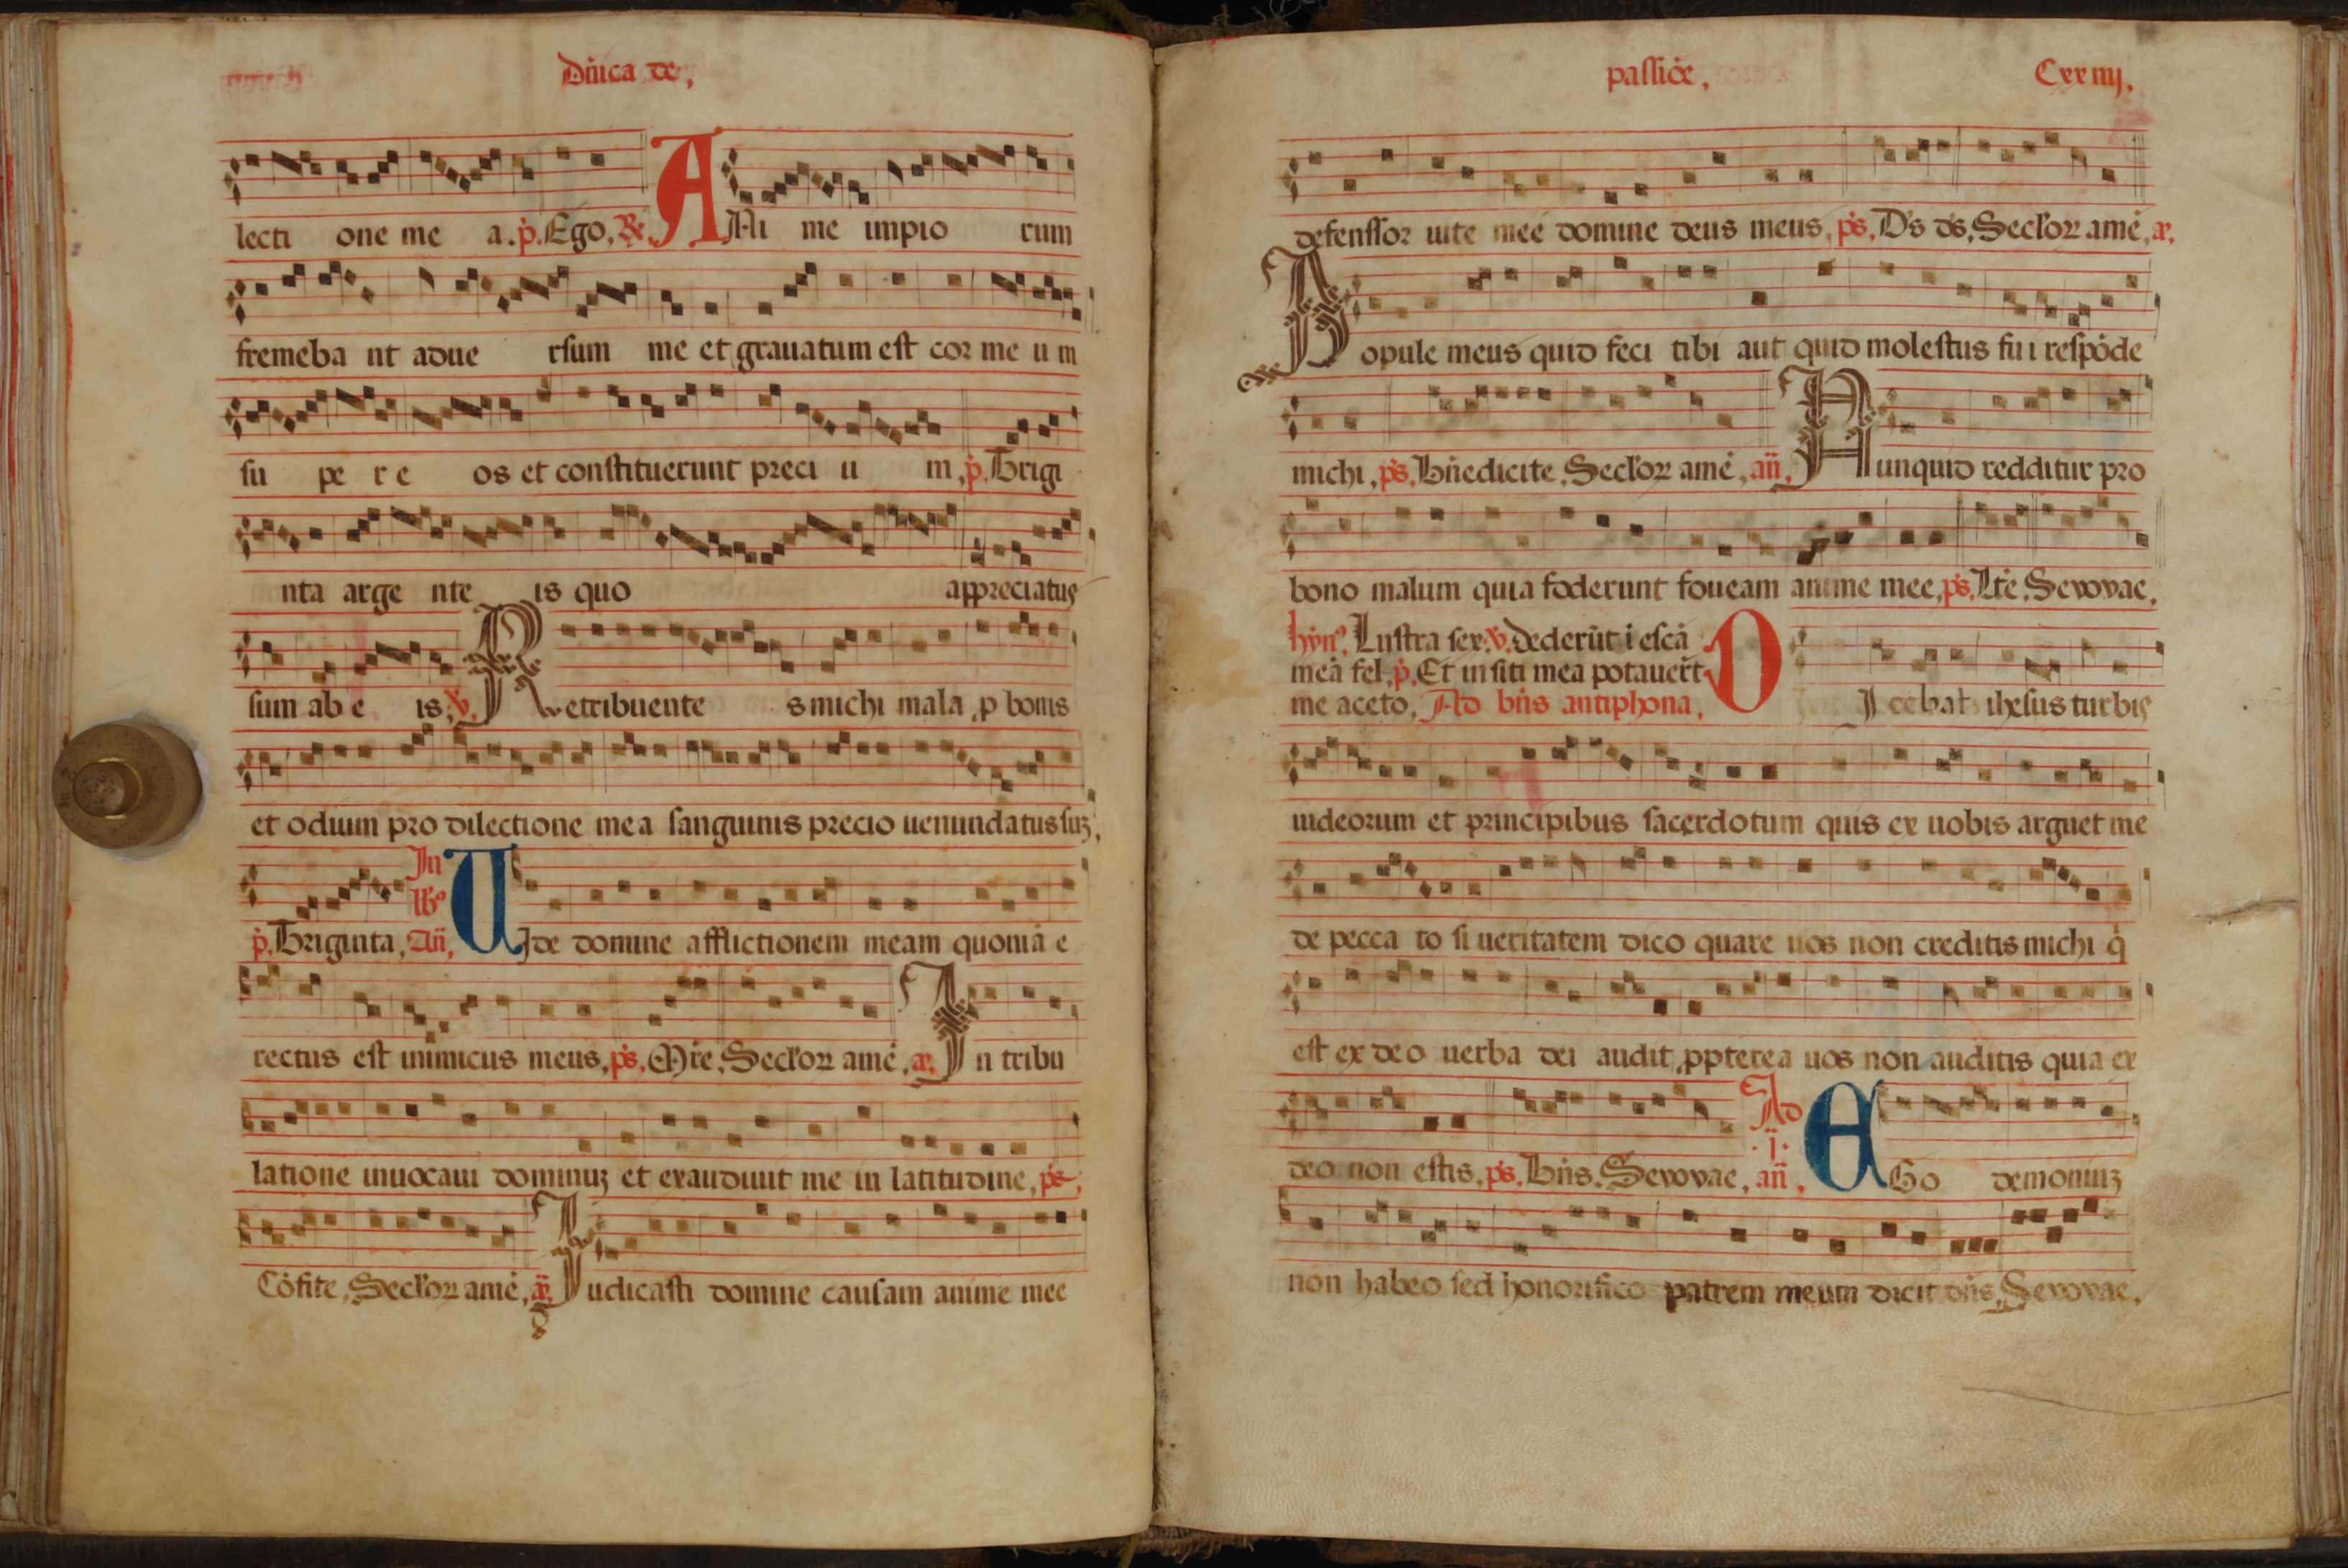 Dn̄ica de.
lecti one me a. p̄. Ego. R̄. ANi me impio rum
fremeba nt adue rsum me et grauatum est cor me u m
su pe r e os et constituerunt preci u m. p̄. Trigi
nta arge nte is quo appreciatus
sum ab e is. v̄. Retribuente s michi mala p bonis
et odium pro dilectione mea sanguinis precio uenundatus suꝫ.
p̄. Triginta. In lb̄s An̄. UIde domine afflictionem meam quoniā e
rectus est inimicus meus. ps̄. Mr̄e. Seclōꝝ amē. a. In tribu
latione inuocaui dominuꝫ et exaudiuit me in latitudine. ps̄.
Cōfite. Seclōꝝ amē. a. Iudicasti domine causam anime mee
passiōe. Cxxiiij.
defenssor uite mee domine deus meus. ps̄. Ds̄ ds̄. Seclōꝝ amē. a.
Popule meus quid feci tibi aut quid molestus fui respōde
michi. ps̄. Bn̄edicite. Seclōꝝ amē. an̄. Nunquid redditur pro
bono malum quia foderunt foueam anime mee. ps̄. Lt̄e. Seuouae.
hȳn9. Lustra sex. v̄. dederūt ī escā
meā fel. p̄. Et in siti mea potauer̄t
me aceto. Ad bn̄s antiphona. DIcebat ihesus turbis
iudeorum et principibus sacerdotum quis ex uobis arguet me
de pecca to si ueritatem dico quare uos non creditis michi q̄
est ex deo uerba dei audit ppterea uos non auditis quia ex
deo non estis. ps̄. Bn̄s. Seuouae. Ad .j. an̄. EGo demoniuꝫ
non habeo sed honorifico patrem meum dicit dn̄s. Seuouae.